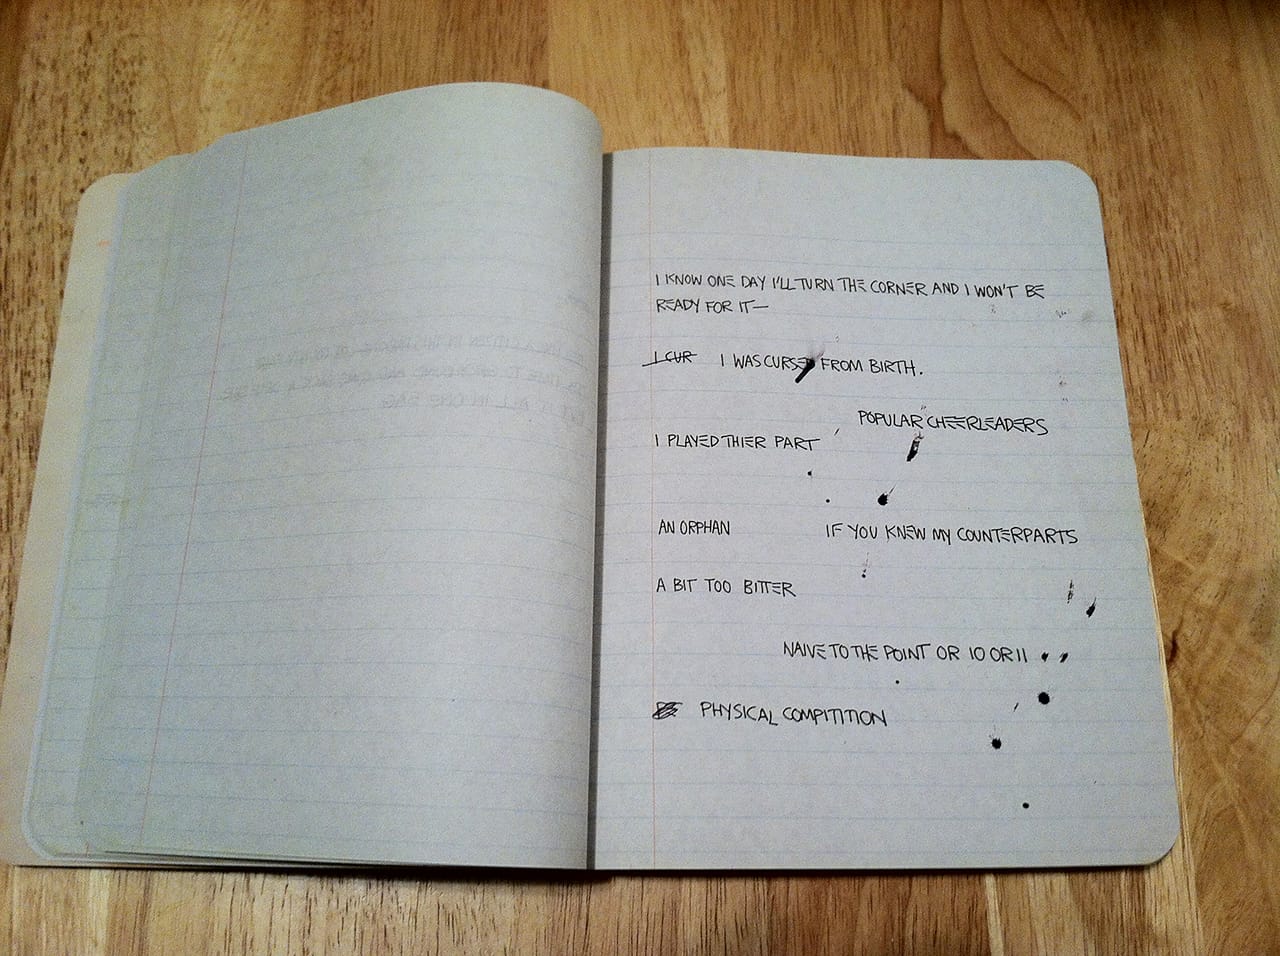 I KNOW ONE DAY I'LL TURN THE CORNER AND I WON'T BE
READY FOR IT—
I CUR I WAS CURSED FROM BIRTH.
POPULAR CHEERLEADERS
I PLAYED THIER PART
AN ORPHAN IF YOU KNEW MY COUNTERPARTS
A BIT TOO BITTER
NAIVE TO THE POINT OR 10 OR 11
PHYSICAL COMPITITION